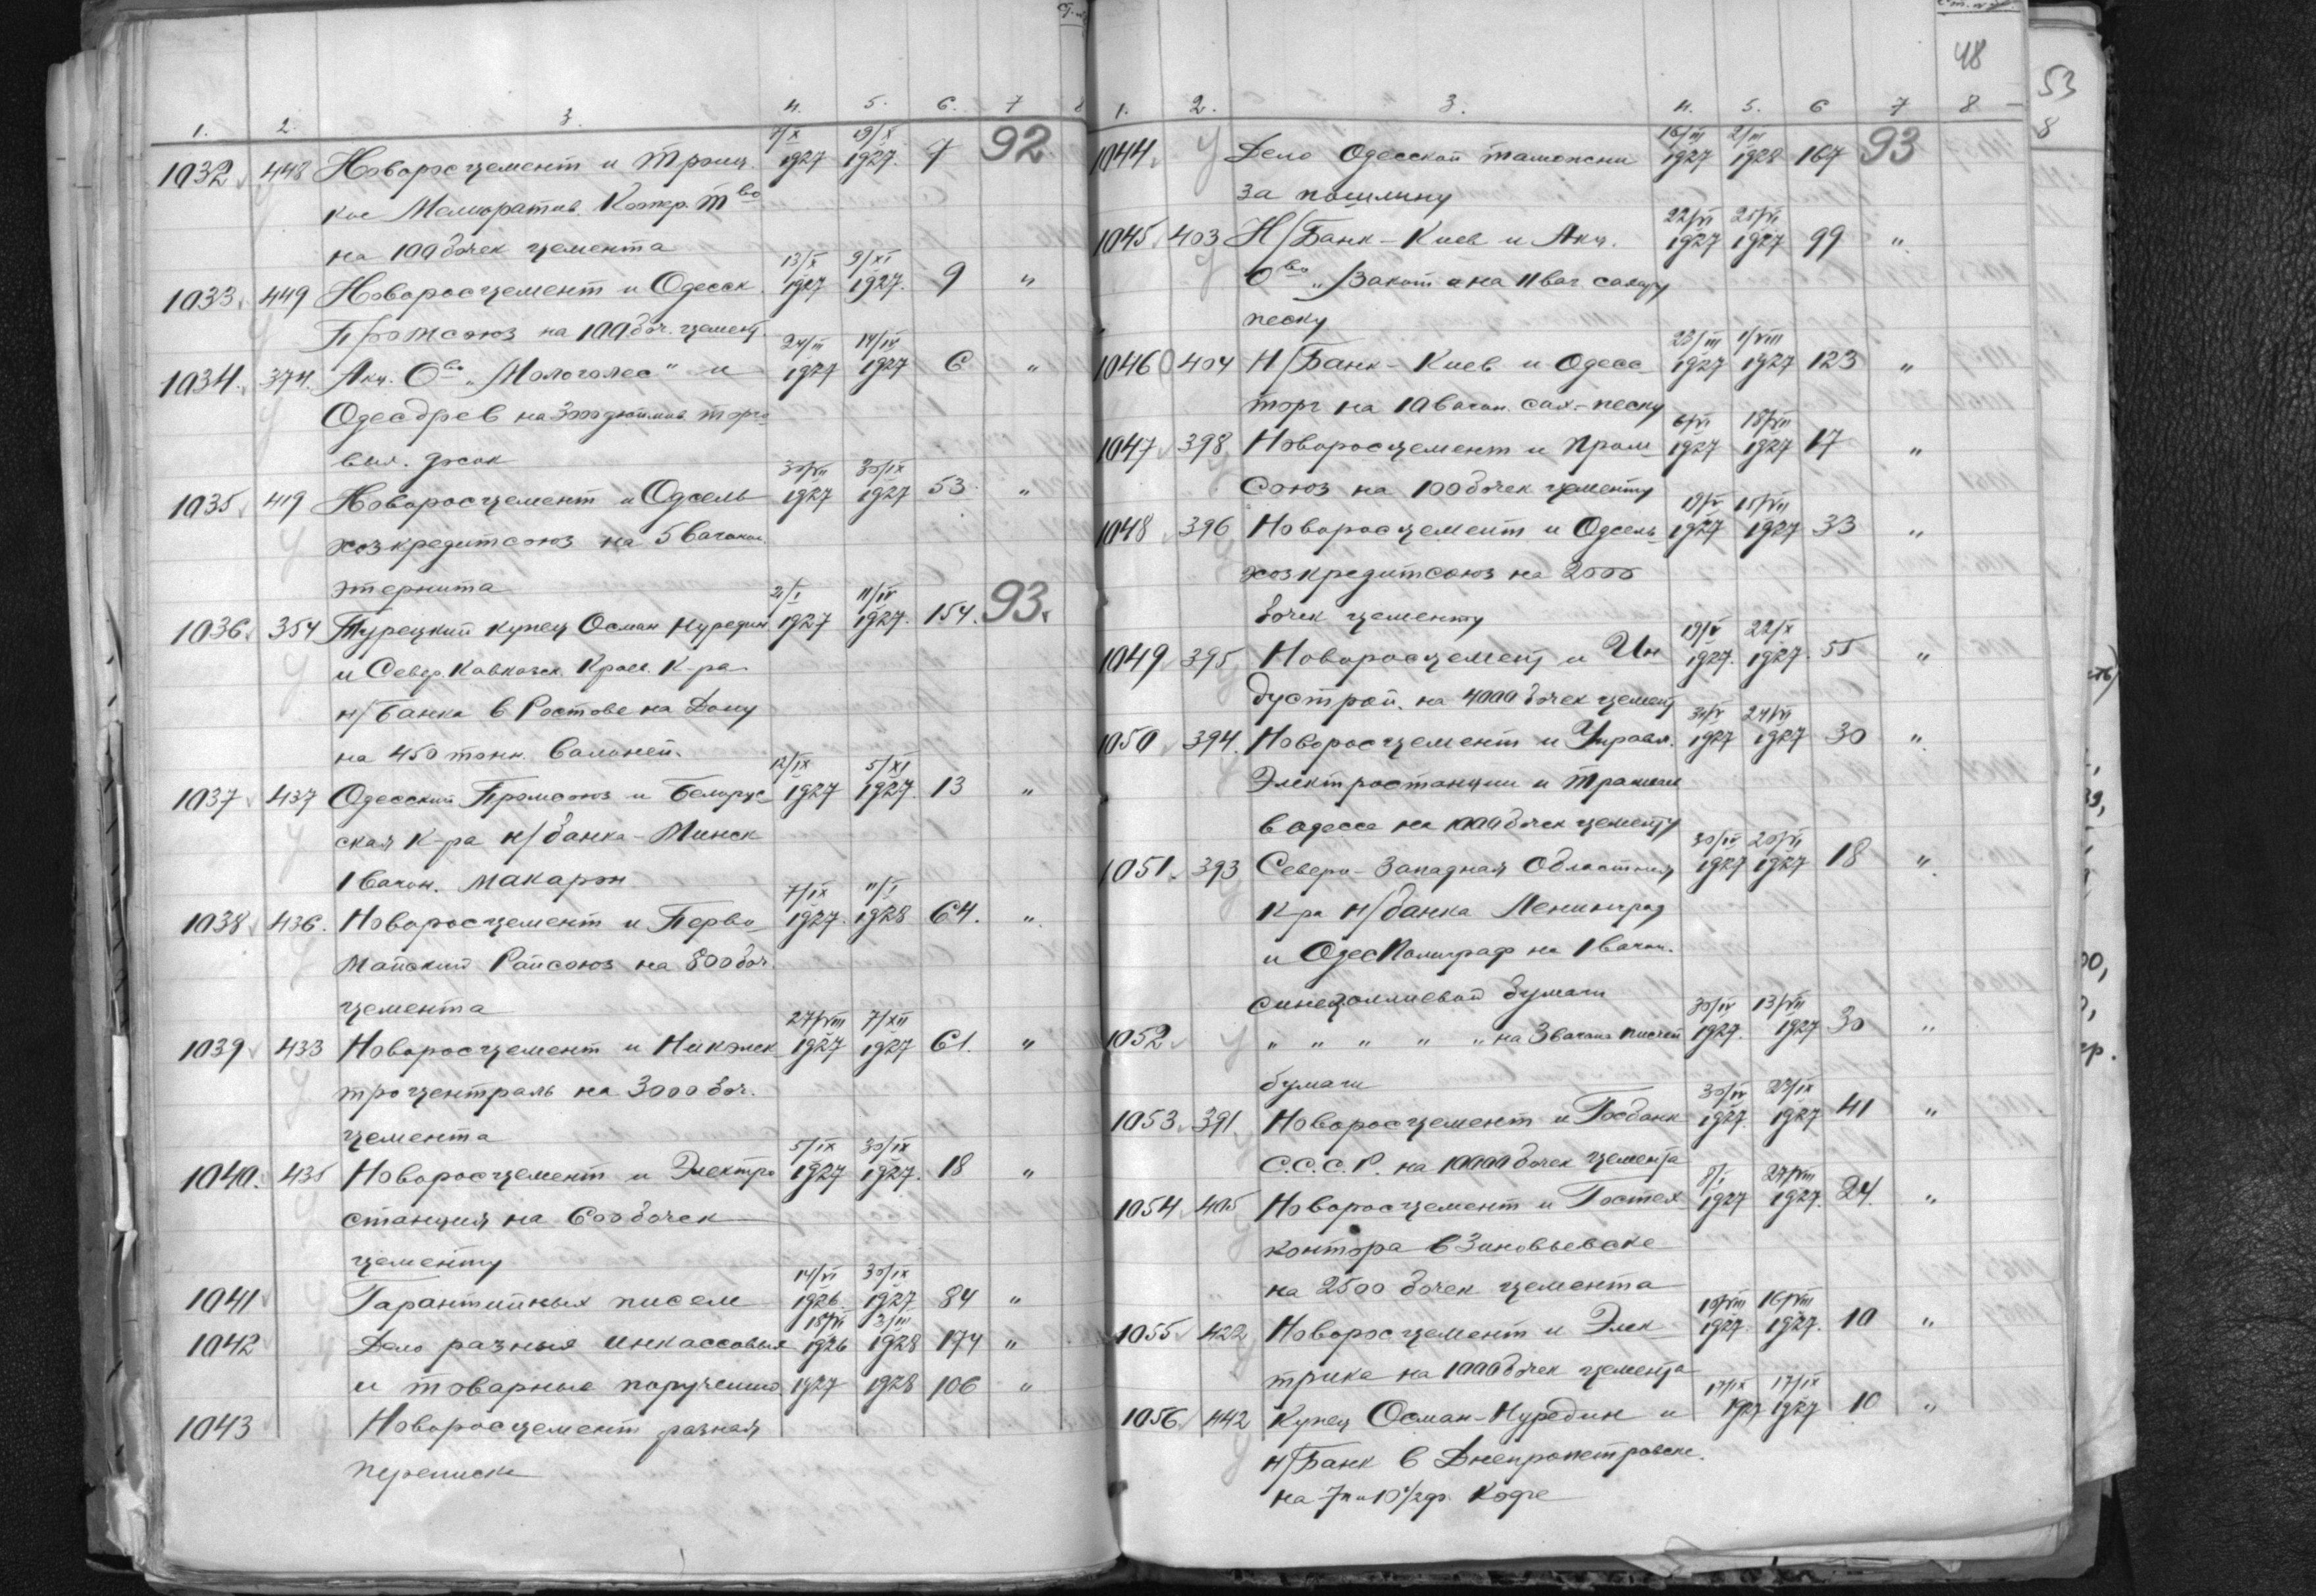 1. 2. 3. 4. 5. 6. 7 8
1032 448 Новоросцемент и Троиц 7/X 1927 19/X 1927. 7 92
кое Мелиоратив. Коопер. Тво
на 100 бочек цемента
1033 449 Новоросцемент и Одесск. 13/X 1927 9/XI 1927. 9 "
Промсоюз на 100 боч. цемент.
1034. 374. Акц. Ово „Мологолес" и 24/III 1927 14/IV 1927 6 "
Одесдрев на торго
вых. досок
1035 419 Новоросцемент и Одсель 30/VII 1927 30/IX 1927 53 "
хозкредитсоюз на 5 вагонов
этернита
1036 354 Турецкий купец Осман Нуредин 21/I 1927 11/IV 1927. 154. 93.
и Север. Кавказск. Краев. К-ра
н/Банка в Ростове на Дону
на 450 тонн. валоней.
1037 437 Одесский Промсоюз и Белорус- 12/IX 1927 5/XI 1927. 13 "
ская К-ра н/банка - Минск
1 вагон. макарон
1038 436. Новоросцемент и Перво- 7/IX 1927. 11/I 1928 64. "
майский Райсоюз на 800 боч.
цемента
1039 433 Новоросцемент и Никэлек 27/VIII 1927 7/XII 1927 61. "
троцентраль на 3000 боч.
цемента
1040. 435 Новоросцемент и Электро 5/IX 1927 30/IX 1927. 18 "
станция на 600 бочек
цементу
1041 Гарантийных писем 14/VI 1926 30/IX 1927 84 "
1042 Дело разныя инкассовыя 18/VI 1926 3/III 1928 174 "
и товарные поручения 1927 1928 106 "
1043 Новоросцемент разная
переписка
48
53
1. 2. 3. 4. 5. 6 7 8
8
1044. Дело Одесской таможни 16/III 1927 2/III 1928 167 93
за пошлину
1045 403 Н/Банк - Киев и Акц. 22/VI 1927 25/VI 1927 99 "
Ово на 11 ваг. сахару
песку
1046 404 Н/Банк - Киев и Одесс 23/III 1927 1/VIII 1927 123 "
торг на 10 вагон. сах-песку
1047 398 Новоросцемент и Пром- 6/VI 1927 18/VII 1927 17 "
союз на 100 бочек цементу
1048 396 Новоросцемент и Одсель- 19/V 1927 15/VII 1927 33 "
хозкредитсоюз на 2000
бочек цементу
1049 395 Новоросцемент и Ин 19/V 1927. 22/X 1927. 55 "
дустрой. на 4000 бочек цемент
1050 394. Новоросцемент и Управл. 31/V 1927 24/VI 1927 30 "
Электростанции и трамваи
в Одессе на 1000 бочек цементу
1051. 393 Северо-Западная Областная 30/IV 1927 20/VI 1927 18 "
К-ра н/банка Ленинград
и ОдесПолиграф на 1 вагон.
бумаги
1052 " " " " " на 3 вагона писчей 30/IV 1927. 13/VII 1927 30 "
бумаги
1053. 391. Новоросцемент и Госбанк 30/IV 1927. 23/IX 1927 41 "
С.С.С.Р. на 10000 бочек цемента
1054 405 Новоросцемент и Гостех 8/I 1927 27/VIII 1927. 24. "
контора в Зиновьевске
на 2500 бочек цемента
1055 422 Новоросцемент и Элек- 10/VIII 1927. 16/VIII 1927. 10 "
трика на 1000 бочек цемента
1056. 442 Купец Осман-Нуредин и 17/IX 1927 17/IX 1927 10 "
н/Банк в Днепропетровске.
на Кофе